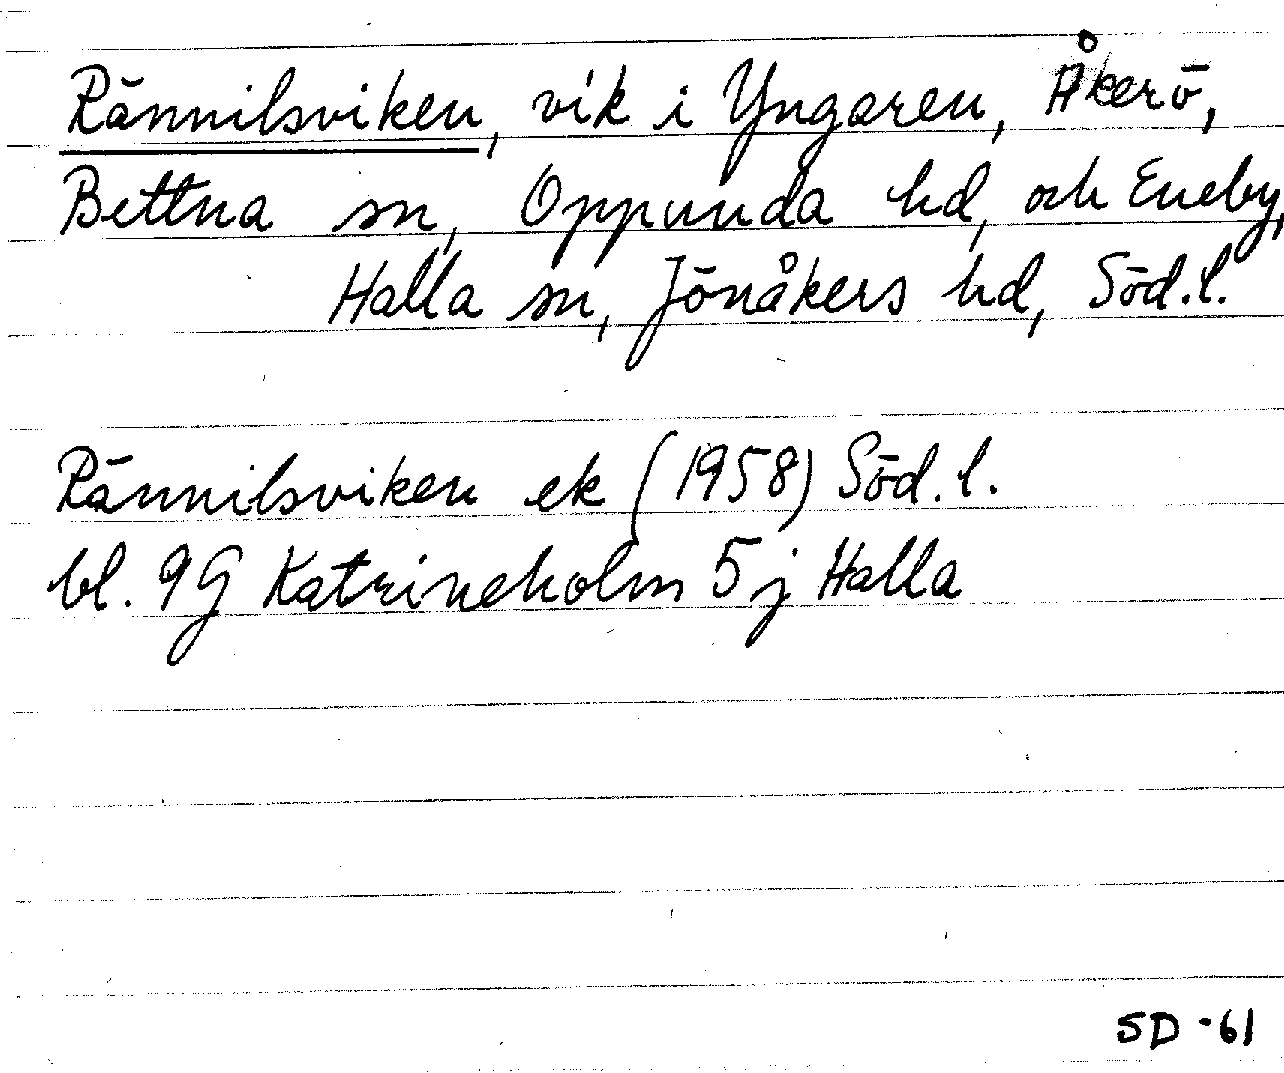 Rännilsviken, vik i Yngaren, Åkerö,
Bettna sn, Oppunda hd, och Eneby,
Halla sn, Jönåkers hd, Söd.l.
Rännilsviken ek (1958) Söd.l.
bl. 9G Katrineholm 5j Halla
SD -61